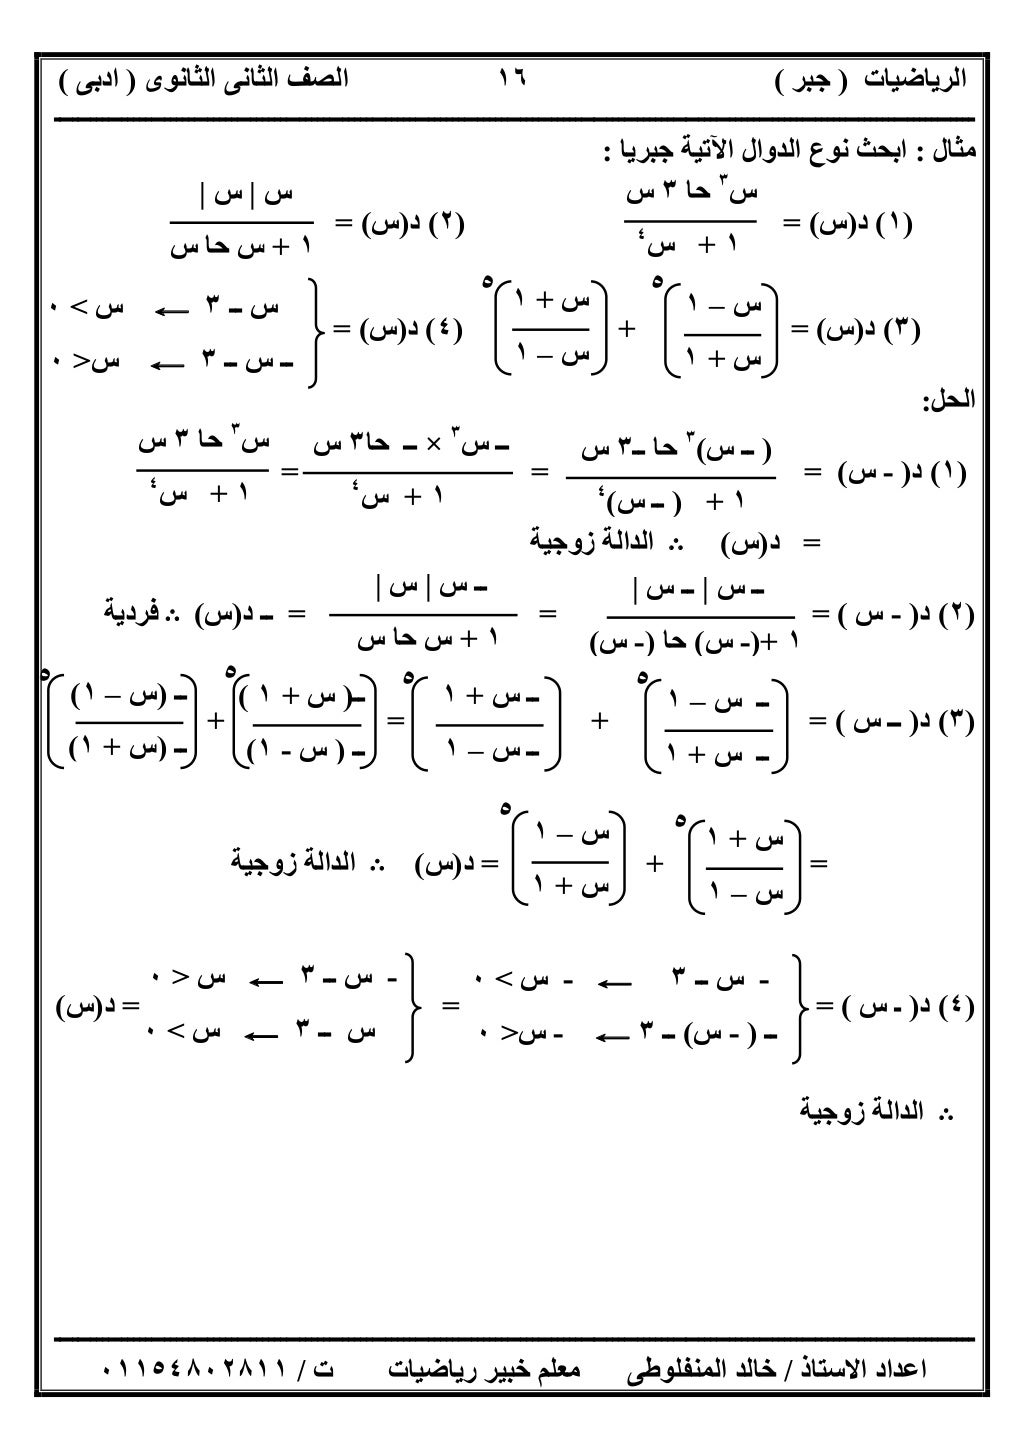 الرياضيات ( جبر ) ١٦ الصف الثانى الثانوى ( ادبى )
مثال : ابحث نوع الدوال الآتية جبريا :
(١) د(س) = س٣ حا ٣ س / ١ + س٤ (٢) د(س) = س | س | / ١ + س حا س
(٣) د(س) = (س – ١ / س + ١)٥ + (س + ١ / س – ١)٥ (٤) د(س) = { س ــ ٣ ← س > ٠
ــ س ــ ٣ ← س< ٠
الحل:
(١) د( - س) = ( ــ س)٣ حا ــ٣ س / ١ + ( ــ س)٤ = ــ س٣ × ــ حا٣ س / ١ + س٤ = س٣ حا ٣ س / ١ + س٤
= د(س) ∴ الدالة زوجية
(٢) د( - س ) = ــ س | ــ س | / ١ +(- س) حا (- س) = ــ س | س | / ١ + س حا س = ــ د(س) ∴ فردية
(٣) د( ــ س ) = (ــ س – ١ / ــ س + ١)٥ + (ــ س + ١ / ــ س – ١)٥ = (ــ( س + ١ ) / ــ ( س - ١))٥ + (ــ (س – ١) / ــ (س + ١))٥
= (س + ١ / س – ١)٥ + (س – ١ / س + ١)٥ = د(س) ∴ الدالة زوجية
(٤) د( ـ س ) = { - س ــ ٣ ← - س > ٠ = { - س ــ ٣ ← س < ٠ = د(س)
ــ ( - س) ــ ٣ ← - س< ٠ س ــ ٣ ← س > ٠
∴ الدالة زوجية
اعداد الاستاذ / خالد المنفلوطى معلم خبير رياضيات ت / ٠١١٥٤٨٠٢٨١١